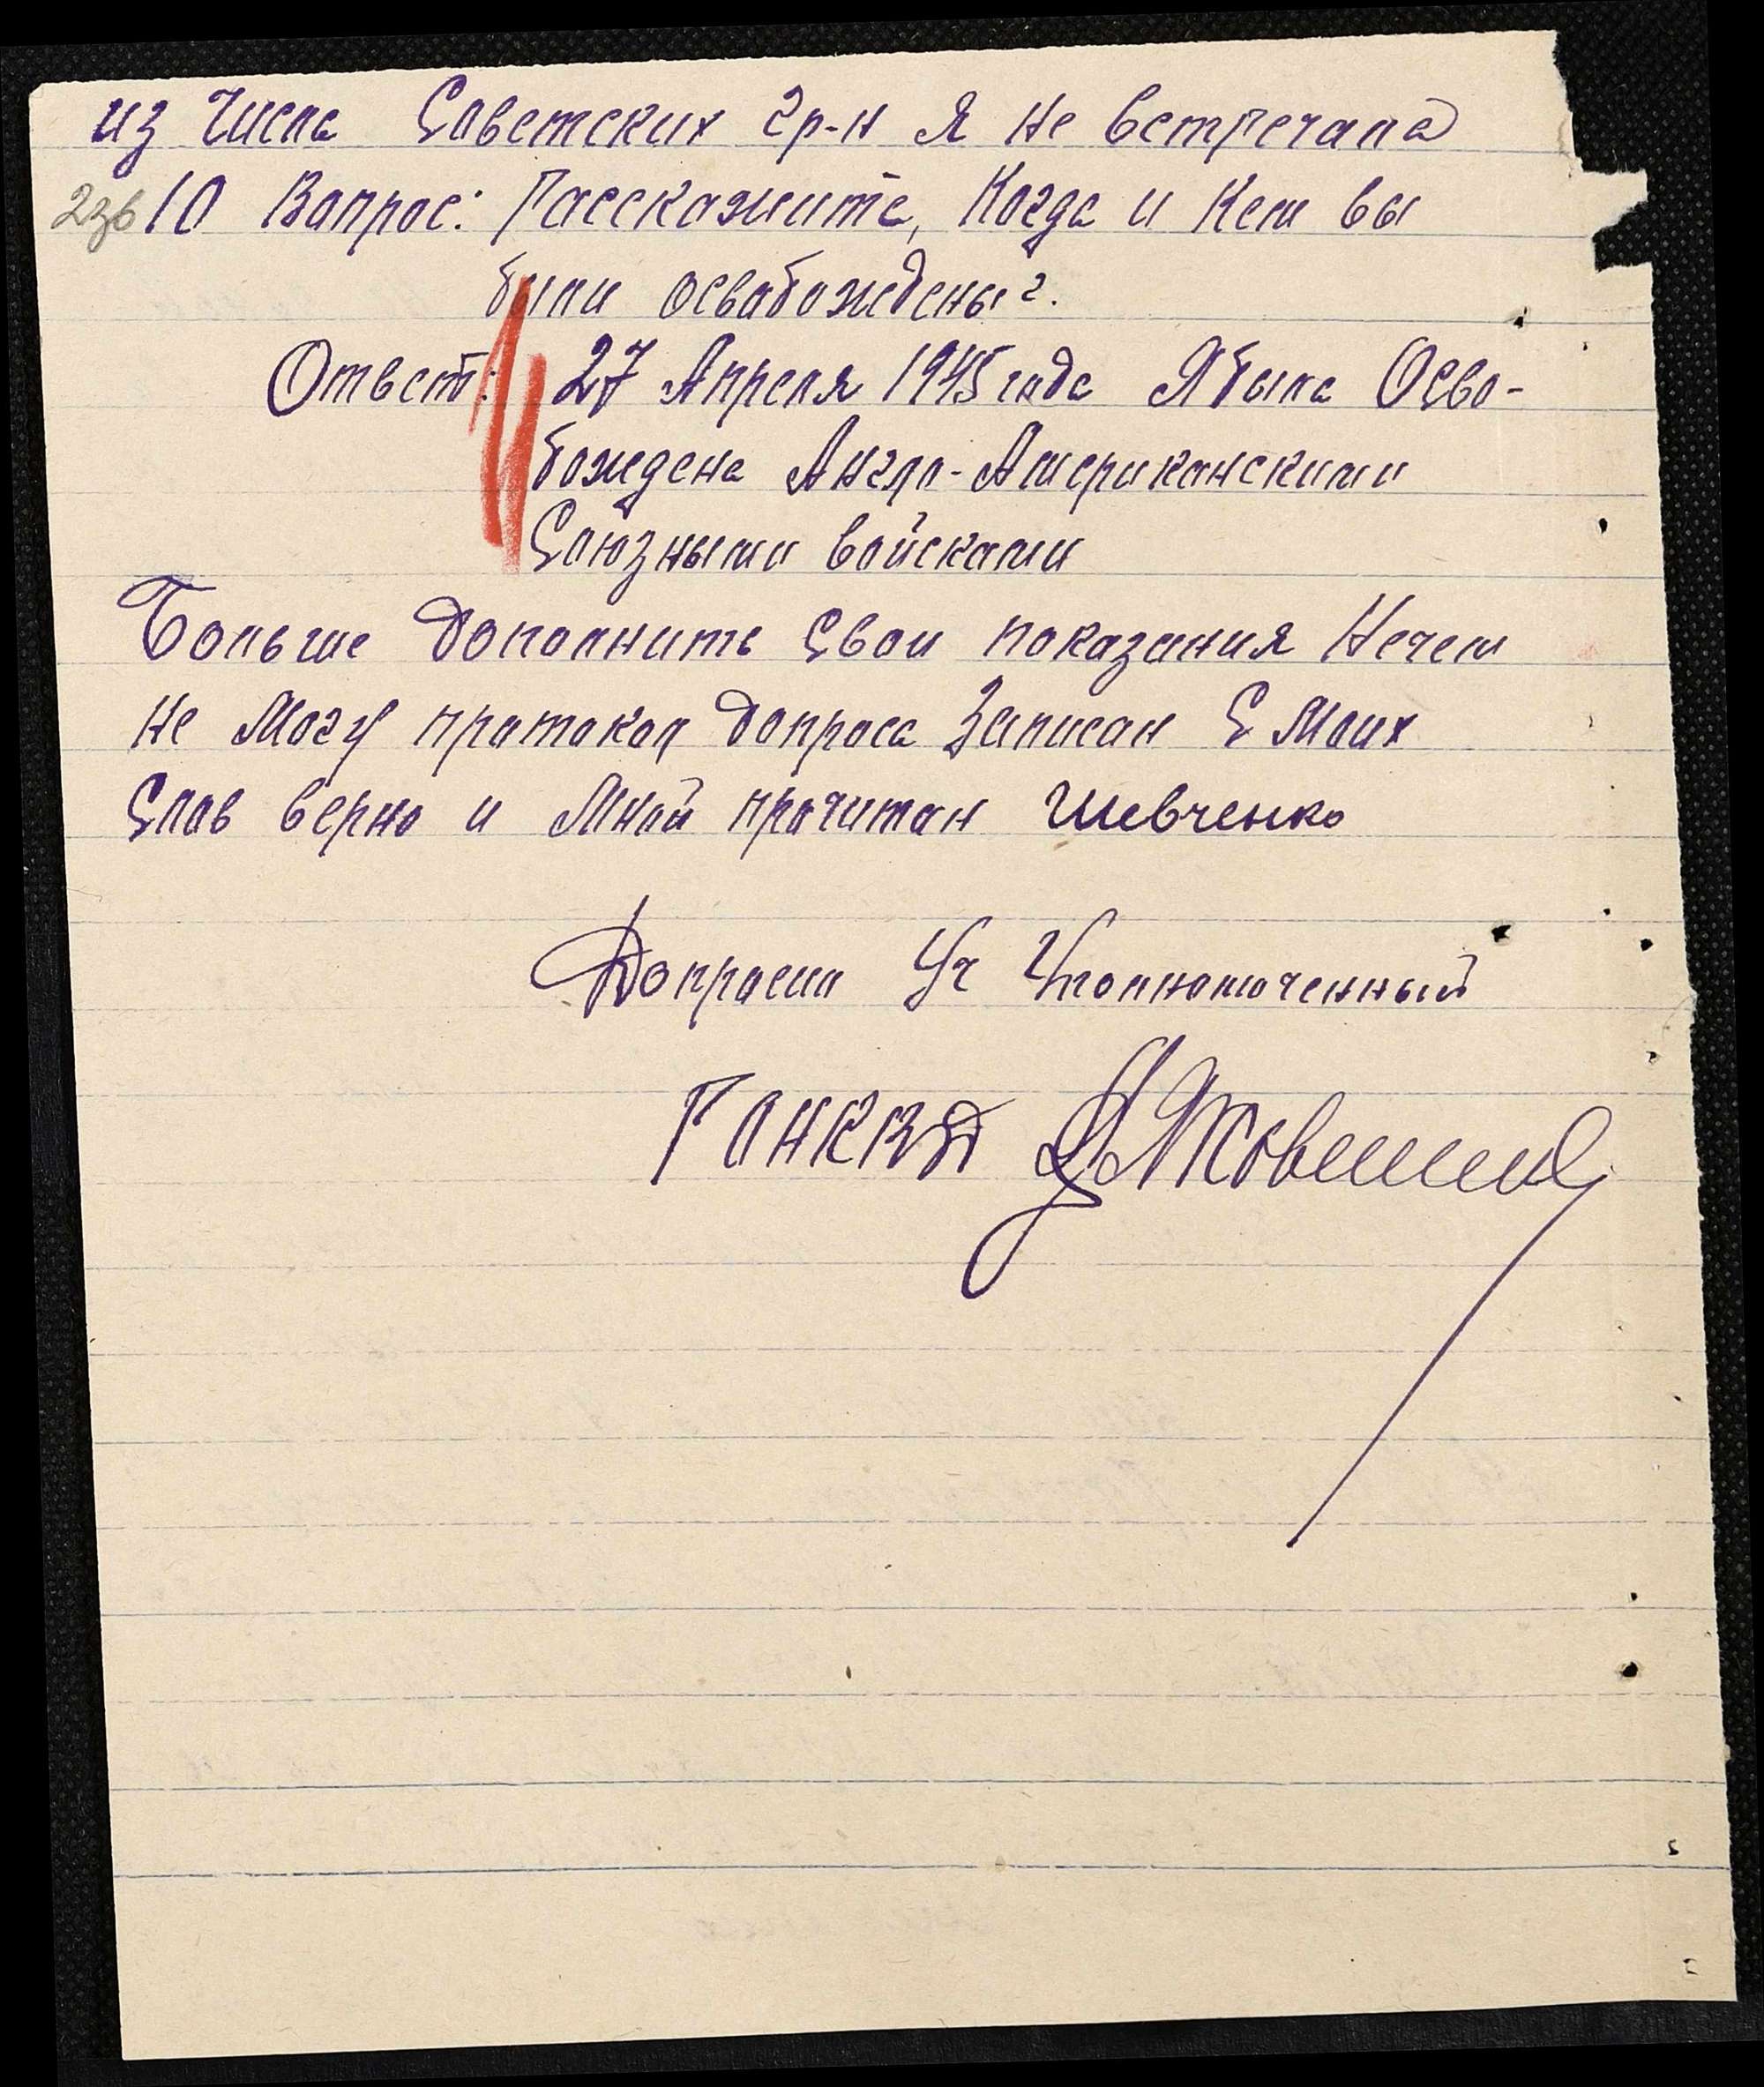 из числа Советских гр-н я не встречала
2зб 10 Вопрос: Расскажите, Когда и Кем вы
были освабождены?.
Ответ: 27 Апреля 1945 года Я была Осво-
бождена Англо-Американскими
Союзными войсками
Больше дополнить свои показания Нечем
не Могу протокол допроса Записан С Моих
Слов верно и Мной прочитан Шевченко
Допросил Уч Уполномоченный